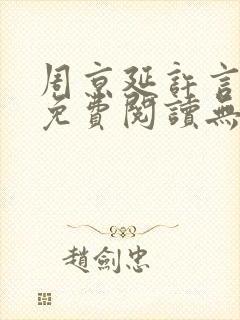 周京延許言
免費閱讀無
趙劍忠